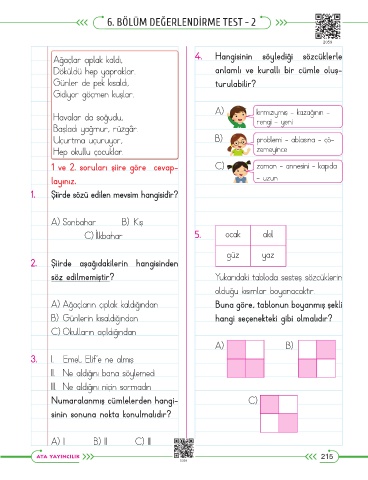 6. BÖLÜM DEĞERLENDİRME TEST - 2
Ağaçlar çıplak kaldı,
Döküldü hep yapraklar.
Günler de pek kısaldı,
Gidiyor göçmen kuşlar.
Havalar da soğudu,
Başladı yağmur, rüzgâr.
Uçurtma uçuruyor,
Hep okullu çocuklar.
1 ve 2. soruları şiire göre cevap-
layınız.
1. Şiirde sözü edilen mevsim hangisidir?
A) Sonbahar B) Kış
C) İlkbahar
2. Şiirde aşağıdakilerin hangisinden
söz edilmemiştir?
A) Ağaçların çıplak kaldığından
B) Günlerin kısaldığından
C) Okulların açıldığından
3. I. Emel, Elif'e ne almış
II. Ne aldığını bana söylemedi
III. Ne aldığını niçin sormadın
Numaralanmış cümlelerden hangi-
sinin sonuna nokta konulmalıdır?
A) I B) II C) III
4. Hangisinin söylediği sözcüklerle
anlamlı ve kurallı bir cümle oluş-
turulabilir?
A) kırmızıymış - kazağının -
rengi - yeni
B) problemi - ablasına - çö-
zemeyince
C) zaman - annesini - kapıda
- uzun
5. ocak akıl
güz yaz
Yukarıdaki tabloda sesteş sözcüklerin
olduğu kısımlar boyanacaktır.
Buna göre, tablonun boyanmış şekli
hangi seçenekteki gibi olmalıdır?
A) B)
C)
ATA YAYINCILIK
215